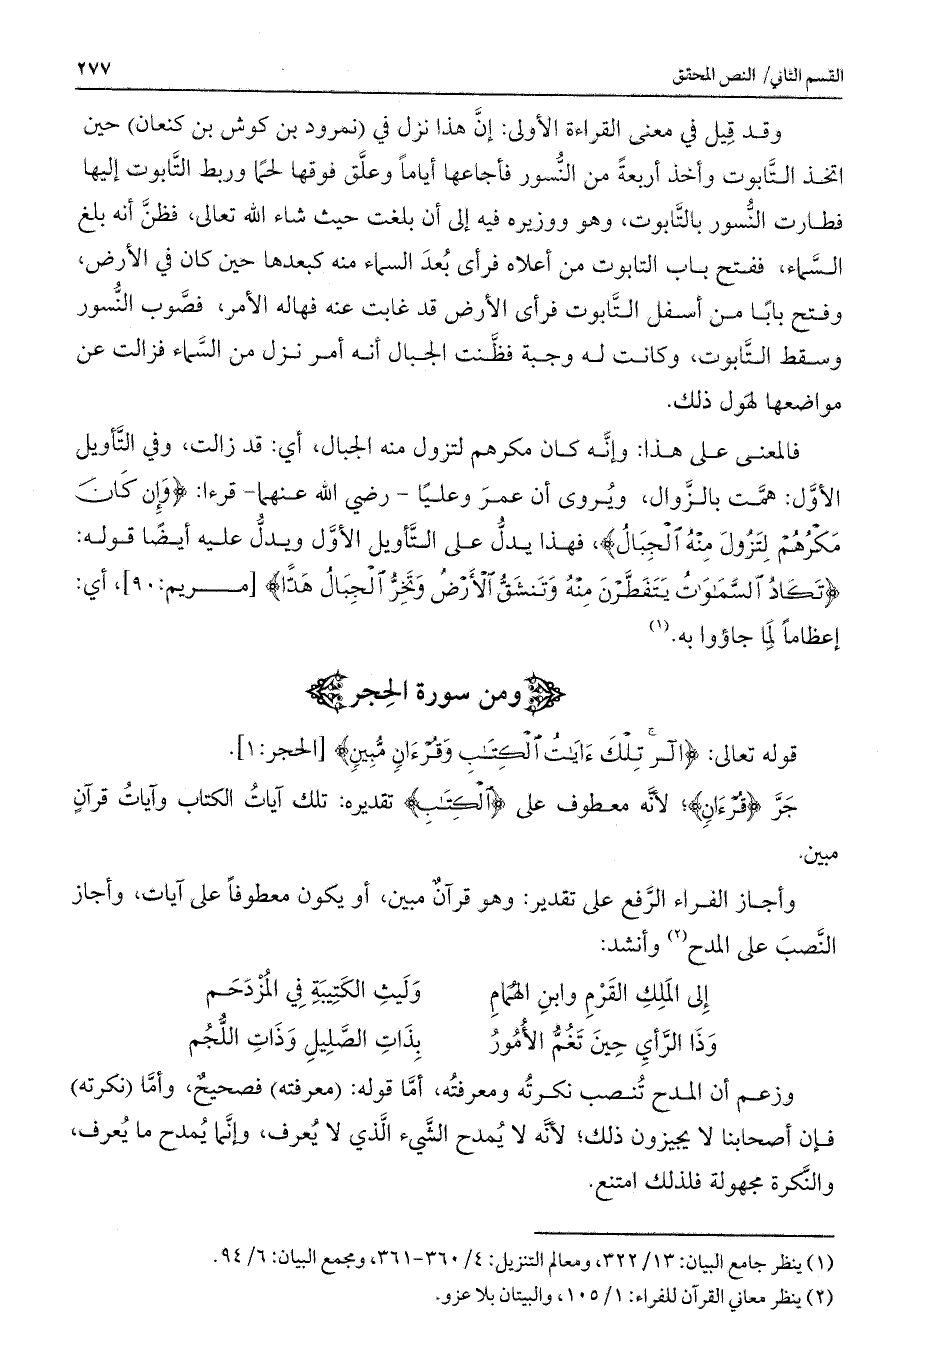 القسم الثاني/ النص المحقق ٢٧٧
وقد قِيل في معنى القراءة الأولى: إنَّ هذا نزل في (نمرود بن كوش بن كنعان) حين
اتخذ التَّابوت وأخذ أربعةً من النُّسور فأجاعها أياماً وعلَّق فوقها لحمًا وربط التَّابوت إليها
فطارت النُّسور بالتَّابوت، وهو ووزيره فيه إلى أن بلغت حيث شاء الله تعالى، فظنَّ أنه بلغ
السَّماء، ففتح باب التابوت من أعلاه فرأى بُعدَ السماء منه كبعدها حين كان في الأرض،
وفتح بابًا من أسفل التَّابوت فرأى الأرض قد غابت عنه فهاله الأمر، فصَّوب النُّسور
وسقط التَّابوت، وكانت له وجبة فظَّنت الجبال أنه أمر نزل من السَّماء فزالت عن
مواضعها لهَول ذلك.
فالمعنى على هذا: وإنَّه كان مكرهم لتزول منه الجبال، أي: قد زالت، وفي التَّأويل
الأوَّل: همَّت بالزَّوال، ويُروى أن عمرَ وعليًا - رضي الله عنهما- قرءا: ﴿وَإِن كَانَ
مَكْرُهُمْ لِتَزُولَ مِنْهُ ٱلْجِبَالُ﴾، فهذا يدلُّ على التَّأويل الأوَّل ويدلُّ عليه أيضًا قوله:
﴿تَكَادُ ٱلسَّمَـٰوَٰتُ يَتَفَطَّرْنَ مِنْهُ وَتَنشَقُّ ٱلْأَرْضُ وَتَخِرُّ ٱلْجِبَالُ هَدًّا﴾ [مريم:٩٠]، أي:
إعظاماً لِمَا جاؤوا به.(١)
ومن سورة الحِجر
قوله تعالى: ﴿الٓرۚ تِلْكَ ءَايَـٰتُ ٱلْكِتَـٰبِ وَقُرْءَانٍ مُّبِينٍ﴾ [الحجر:١].
جَرَّ ﴿قُرْءَانٍ﴾؛ لأنَّه معطوف على ﴿ٱلْكِتَـٰبِ﴾ تقديره: تلك آياتُ الكتاب وآياتُ قرآنٍ
مبين.
وأجاز الفراء الرَّفع على تقدير: وهو قرآنٌ مبين، أو يكون معطوفاً على آيات، وأجاز
النَّصبَ على المدح(٢) وأنشد:
إلى المَلِكِ القَرْمِ وابنِ الهُمَامِ وَلَيثِ الكَتِيبَةِ فِي المُزْدَحَمِ
وَذَا الرَّأيِ حِينَ تَغُمُّ الأُمُورُ بِذَاتِ الصَّلِيلِ وَذَاتِ اللُّجُم
وزعم أن المدح تُنصب نكرتُه ومعرفتُه، أمَّا قوله: (معرفته) فصحيحٌ، وأمَّا (نكرته)
فإن أصحابنا لا يجيزون ذلك؛ لأنَّه لا يُمدح الشَّيء الَّذي لا يُعرف، وإنَّما يُمدح ما يُعرف،
والنَّكرة مجهولة فلذلك امتنع.
(١) ينظر جامع البيان: ١٣/ ٣٢٢، ومعالم التنزيل: ٤/ ٣٦٠-٣٦١، ومجمع البيان: ٦/ ٩٤.
(٢) ينظر معاني القرآن للفراء: ١/ ١٠٥، والبيتان بلا عزو.